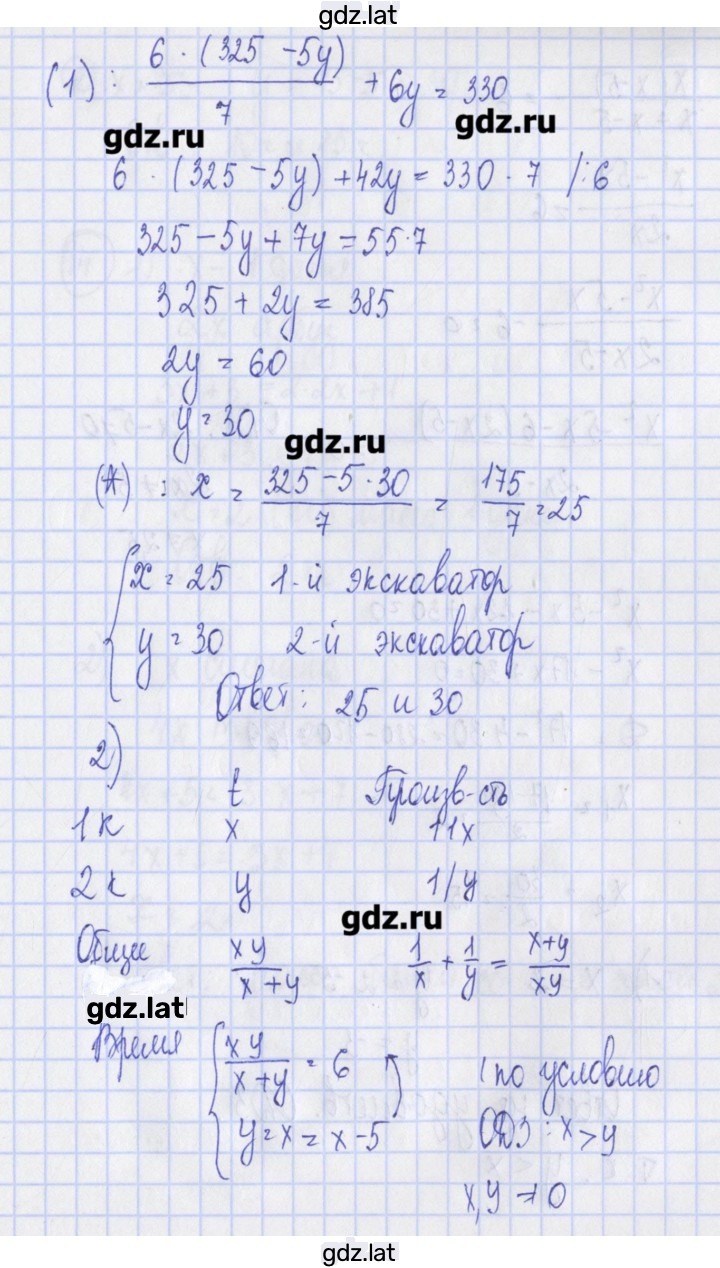 gdz.lat
(1): 6 · (325 - 5y) / 7 + 6y = 330
gdz.ru gdz.ru
6 · (325 - 5y) + 42y = 330 · 7 /:6
325 - 5y + 7y = 55·7
325 + 2y = 385
2y = 60
y = 30
gdz.ru
(*): x = 325 - 5·30 / 7 = 175 / 7 = 25
{ x = 25 1-й экскаватор
y = 30 2-й экскаватор
Ответ: 25 и 30
2)
t Произв-сть
1к x 11x
2к y 1/y
gdz.ru
Общие xy / x+y 1/x + 1/y = x+y / xy
gdz.lat
Время { xy / x+y = 6 (по условию
y = x = x - 5 ОДЗ: x > y
x, y ≠ 0
gdz.lat